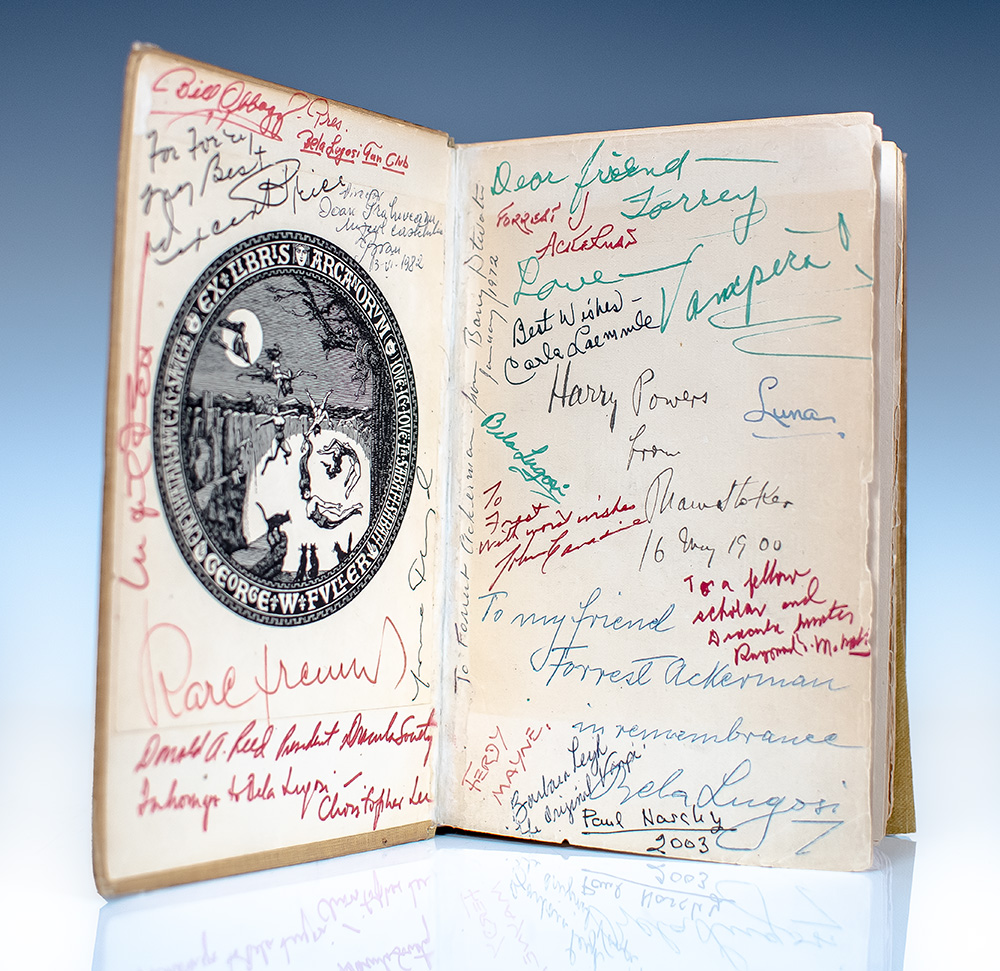 Bill Obbagy. Pres.
Bela Lugosi Fan Club
For Forry
my Best
Vincent Price
13-VI-1982
EX LIBRIS ARCANORVM
GEORGE W FVLLER
Donald A. Reed President Dracula Society
In homage to Bela Lugosi
Christopher Lee
To Forrest Ackerman from Barry Atwater
January 1972
Dear friend
Forrey
FORREST J
ACKERMAN
Love
Vampira!
Best Wishes -
Carla Laemmle
Harry Powers
from
Bram Stoker
16 May 1900
Luna
Bela Lugosi
To
Forrest
With warm wishes
John Carradine
To a fellow
scholar and
Dracula
Raymond T. McNally
To my friend
Forrest Ackerman
in remembrance
Bela Lugosi
FERDY
MAYNE.
Barbara Leigh
The Original Vampi
Paul Naschy
2003